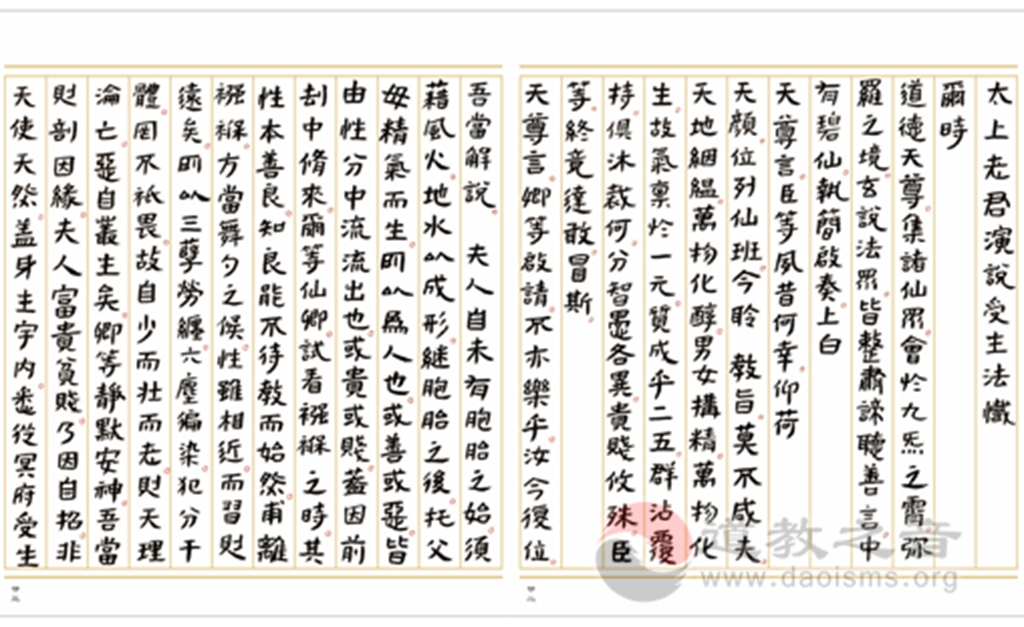 太上老君演說受生法懺
爾時
道德天尊集諸仙眾會於九炁之霄彌
羅之境玄說法眾皆整肅諦聽善言中
有碧仙執簡啟奏上白
天尊言臣等夙昔何幸仰荷
天顏位列仙班今聆 教旨莫不咸夫
天地絪縕萬物化醇男女搆精萬物化
生故氣稟於一元質成乎二五群沾覆
持俱沐裁何分智愚各異貴賤攸殊臣
等終竟達敢冒斯
天尊言卿等啟請不亦樂乎汝今復位
吾當解說 夫人自未有胞胎之始須
藉風火地水以成形繼胞胎之後托父
母精氣而生即以為人也或善或惡皆
由性分中流流出也或貴或賤蓋因前
刦中脩來爾等仙卿試看襁褓之時其
性本善良知良能不待教而始然甫離
襁褓方當舞勺之候性雖相近而習則
遠矣即以三孽勞纏六塵徧染犯分干
體罔不祇畏故自少而壯而老則天理
淪亡惡自叢生矣卿等靜默安神吾當
則剖因緣夫人富貴貧賤乃因自招非
天使天然蓋身生宇內悉從冥府受生
道教之音
www.daoisms.org